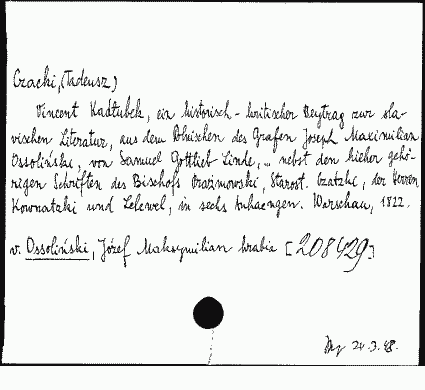 Czacki, (Tadeusz)
Vincent Kadłubek, ein historisch-kritischer Beytrag zur sla-
vischen Literatur, aus dem Polnischen des Grafen Joseph Maximilian
Ossoliński, von Samuel Gottlieb Linde, ... nebst den hieher gehö-
rigen Schriften des Bischofs Prażmowski, Starost. Czatzki, der Herren
Kownatzki und Lelewel, in sechs Anhaengen. Warschau, 1822.
v. Ossoliński, Józef Maksymilian hrabia [208429]
24.3.48.